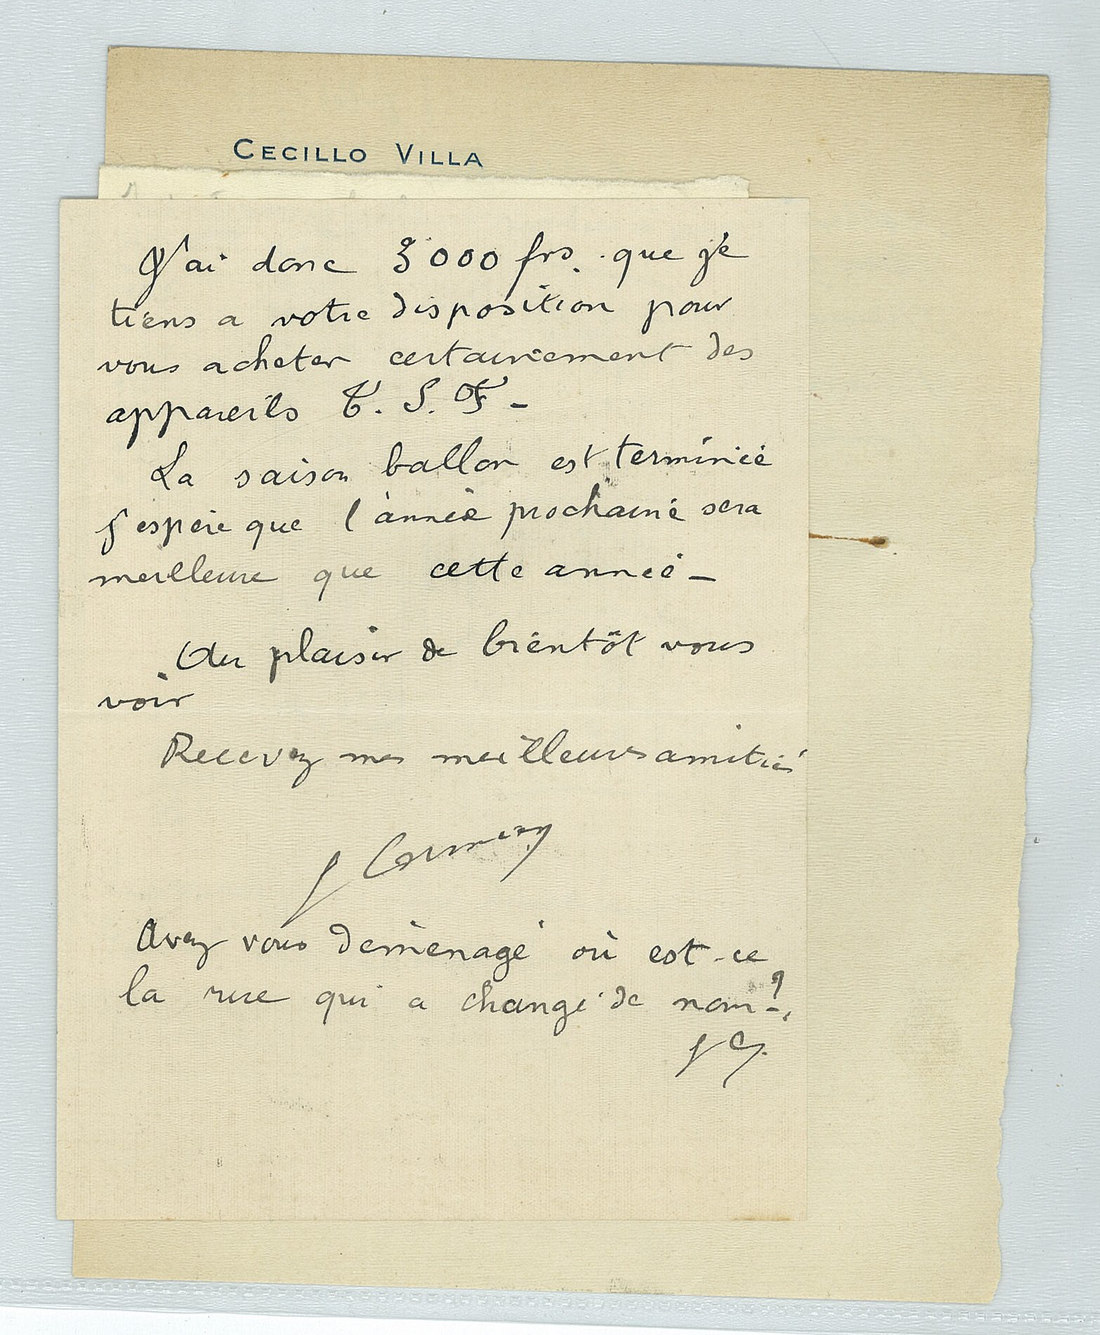 CECILLO VILLA
J'ai donc 3000 frs. que je
tiens a votre disposition pour
vous acheter certainement des
appareils T. S. F -
La saison ballon est terminée
J'espere que l'année prochaine sera
meilleure que cette année -
Au plaisir de bientôt vous
voir
Recevez mes meilleurs amitiés
J
Avez vous demenagé où est-ce
la rue qui a changé de nom?
JC.